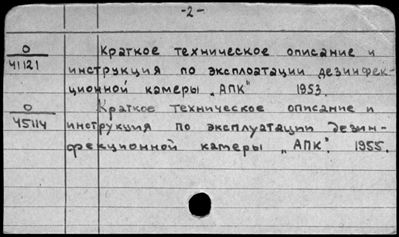 -2-
О Краткое техническое описание и
41121 инструкция по эксплоатации дезинфек-
ционной камеры „АПК" 1953.
О Краткое техническое описание и
45114 инструкция по эксплуатации дезин-
фекционной камеры „АПК". 1955.